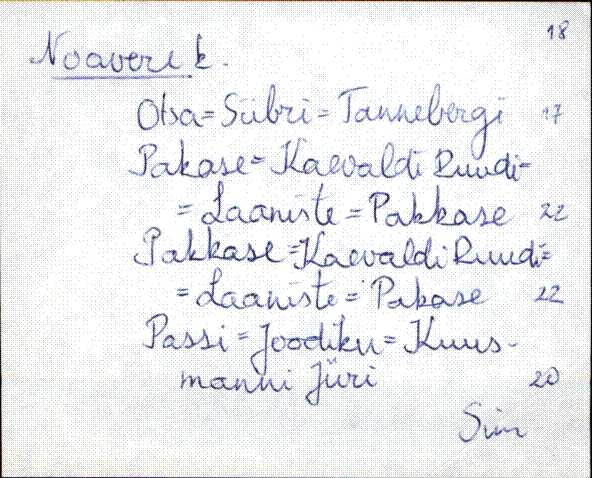 18
Noavere k.
Otsa = Siibri = Tannebergi 17
Pakase = Kaevaldi Ruudi =
= Laaniste = Pakkase 22
Pakkase = Kaevaldi Ruudi =
= Laaniste = Pakase 22
Passi = Joodiku = Kuus-
manni Jüri 20